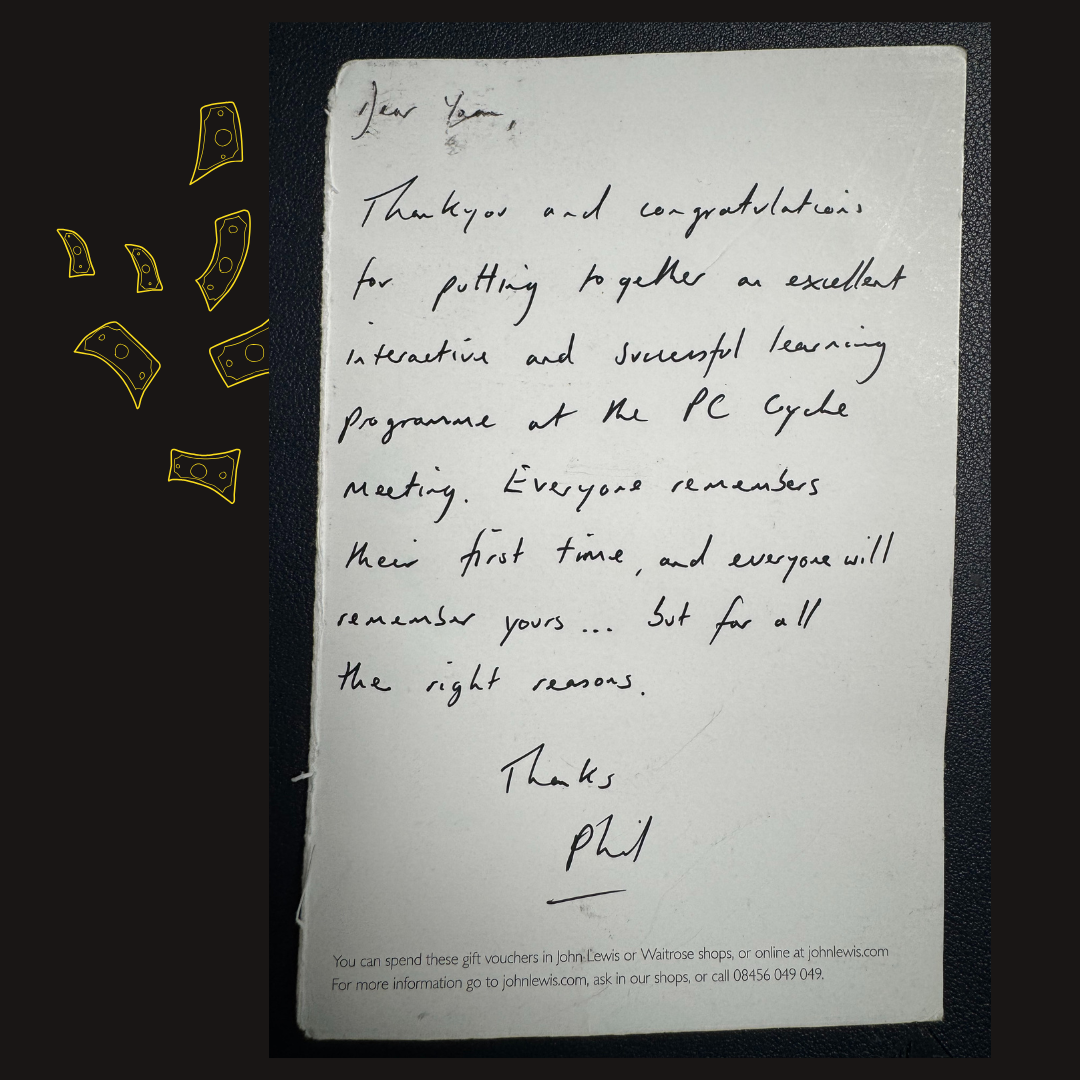 Dear
Thankyou and congratulations
for putting together an excellent
interactive and successful learning
programme at the PC Cycle
meeting. Everyone remembers
their first time, and everyone will
remember yours ... but for all
the right reasons.
Thanks
Phil
You can spend these gift vouchers in John Lewis or Waitrose shops, or online at johnlewis.com
For more information go to johnlewis.com, ask in our shops, or call 08456 049 049.